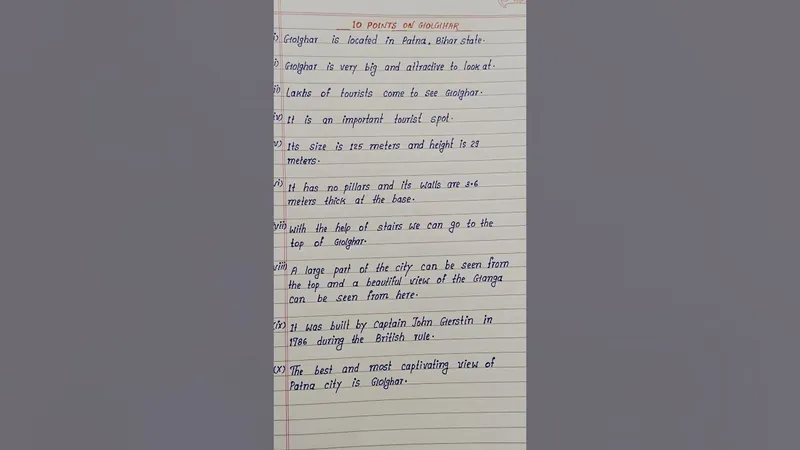 10 POINTS ON GOLGHAR
i) Golghar is located in Patna, Bihar state.
i) Golghar is very big and attractive to look at.
ii) Lakhs of tourists come to see Golghar.
iv) It is an important tourist spot.
v) Its size is 125 meters and height is 29
meters.
vi) It has no pillars and its walls are 3.6
meters thick at the base.
vii) With the help of stairs we can go to the
top of Golghar.
viii) A large part of the city can be seen from
the top and a beautiful view of the Ganga
can be seen from here.
(ix) It was built by Captain John Gerstin in
1786 during the British rule.
(X) The best and most captivating view of
Patna city is Golghar.